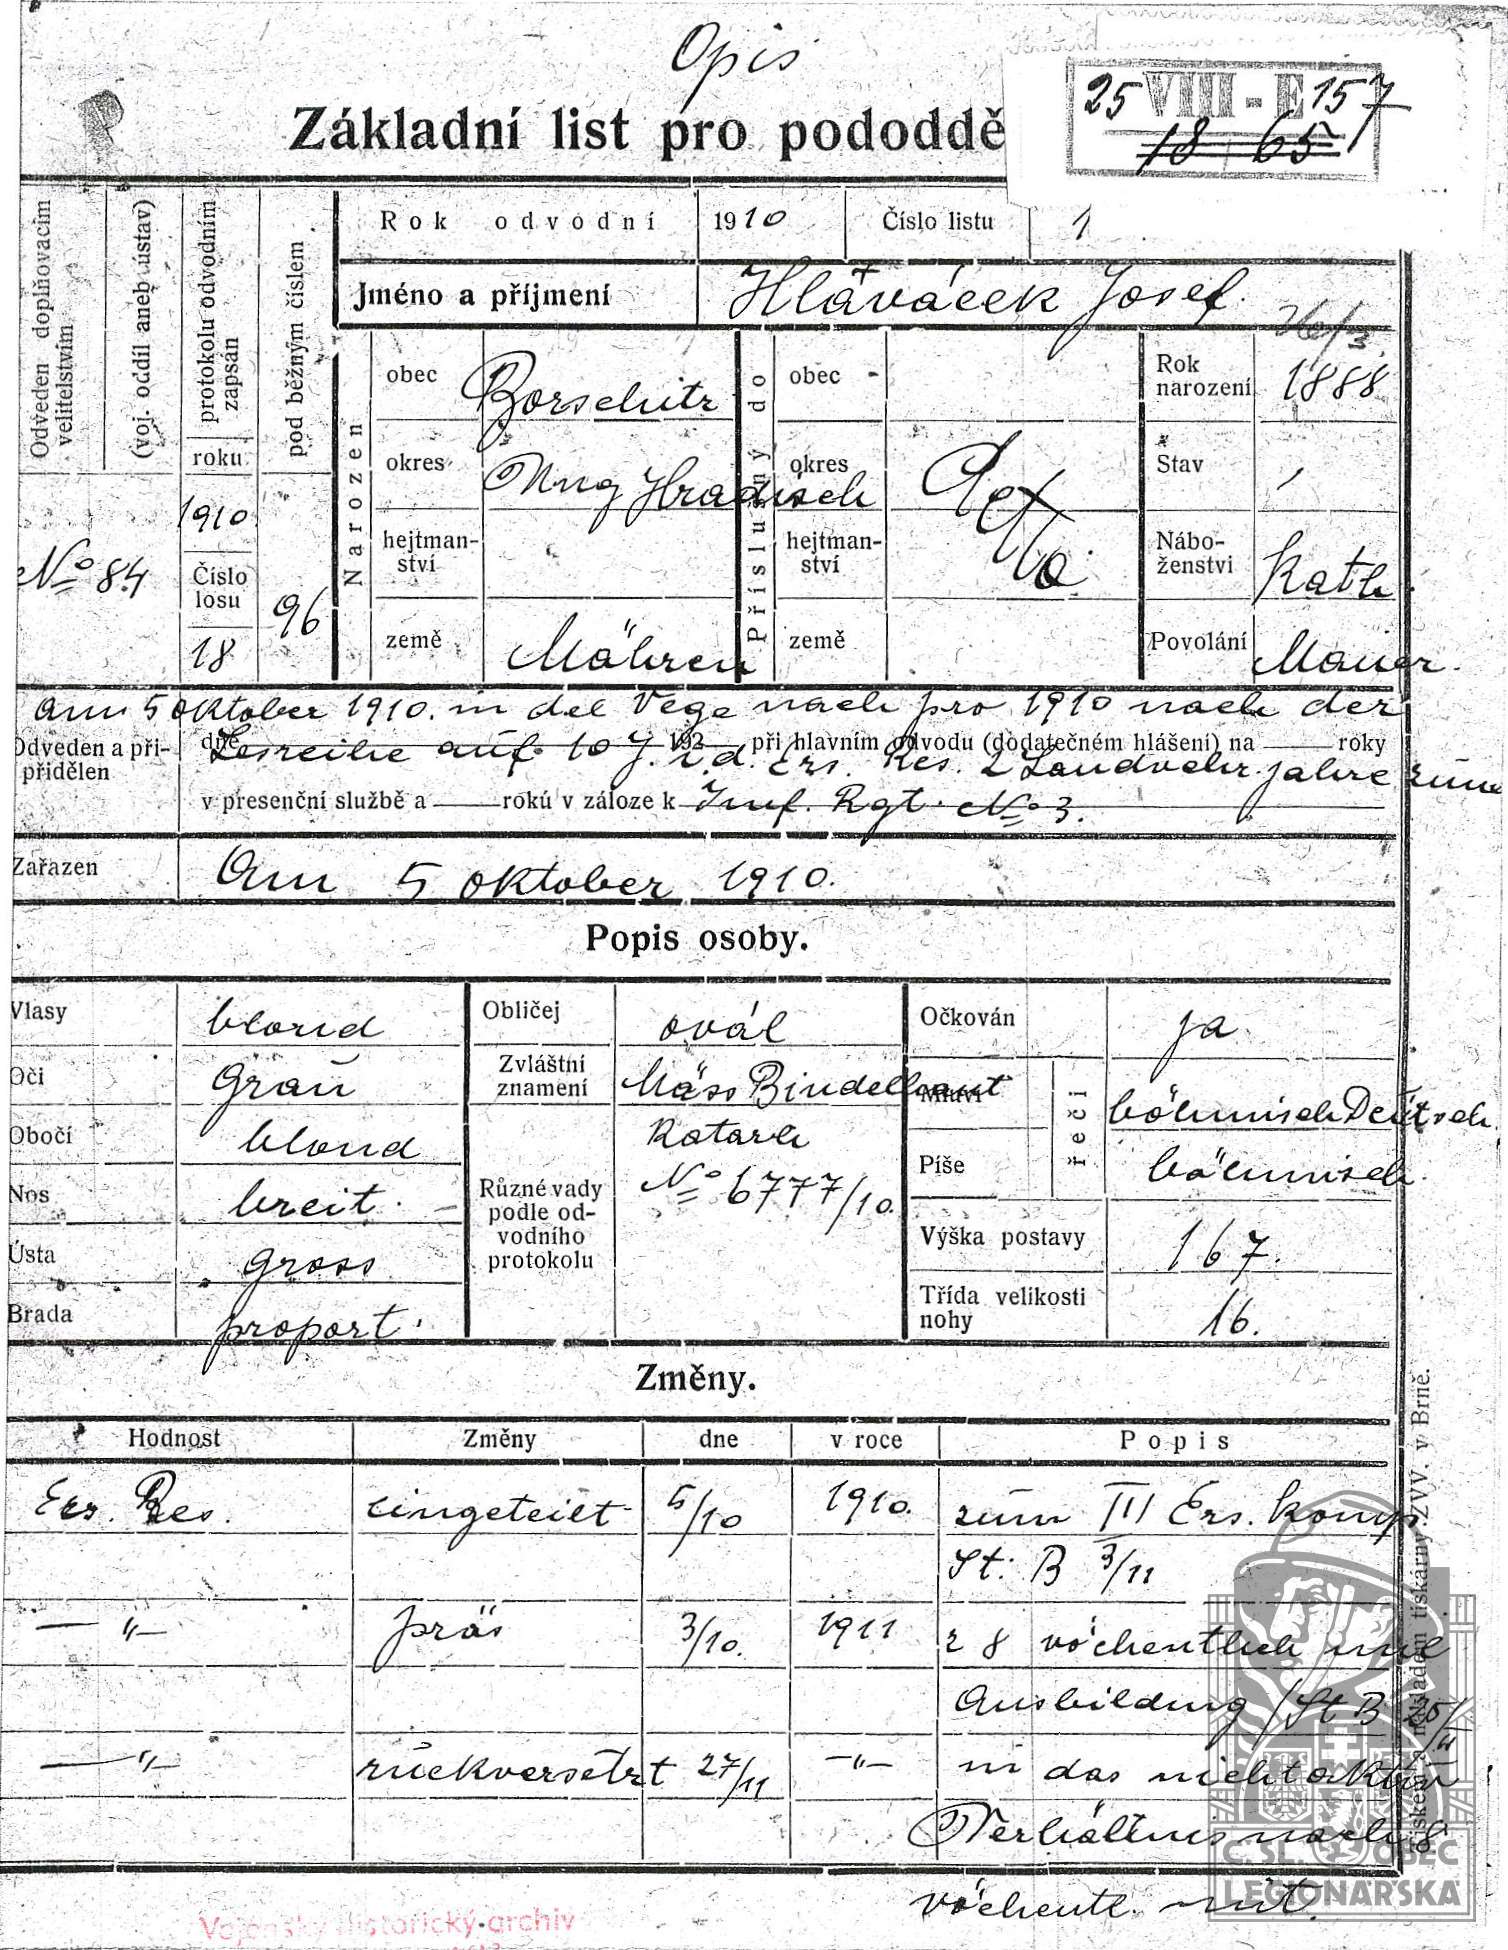 Opis
Základní list pro pododdě
25 VIII - E 157
18 65
Odveden doplňovacím velitelstvím
(voj. oddíl aneb ústav)
protokolu odvodním zapsán
roku
pod běžným číslem
Rok odvodní 1910 Číslo listu 1
Jméno a příjmení Hlaváček Josef
26/3
Narozen
obec Borschitz
okres Ung Hradisch
hejtmanství
země Mähren
Příslušný do
obec
okres
hejtmanství
země
detto
Rok narození 1888
Stav
Náboženství Kath.
Povolání Mauer.
No 84
1910
Číslo losu
18
96
Am 5 oktober 1910. in del Vege nach pro 1910 nach der
Odveden a připřidělen
dne 192 při hlavním odvodu (dodatečném hlášení) na roky
Losreihe auf 10 J. i. d. Ers. Res. 2 Landvehr. jahre zum
v presenční službě a roků v záloze k Inf. Rgt. No 3.
Zařazen Am 5 oktober 1910.
Popis osoby.
Vlasy blond
Oči Grau
Obočí blond
Nos breit.
Ústa gross
Brada proport.
Obličej ovál
Zvláštní znamení Mäss Bindelhaut
Katarh
Různé vady podle odvodního protokolu No 6777/10.
Očkován ja
řeči
Mluví böhmisch Deutsch
Píše böhmisch.
Výška postavy 167.
Třída velikosti nohy 16.
Změny.
Hodnost Změny dne v roce Popis
Ers. Res. eingeteilt 5/10 1910. zum III Ers. Komp.
St: B 3/11
—"— präs 3/10. 1911 z 8 vöchentlich mil
Ausbildung /St B 25/11
—"— rückversetzt 27/11 —"— in das nichtaktiv
Verhältnis nach 8
vöchentl. mil.
Tiskem a nákladem tiskárny ZVV. v Brně.
Č. SL. OBEC
LEGIONÁŘSKÁ
Vojenský historický archiv